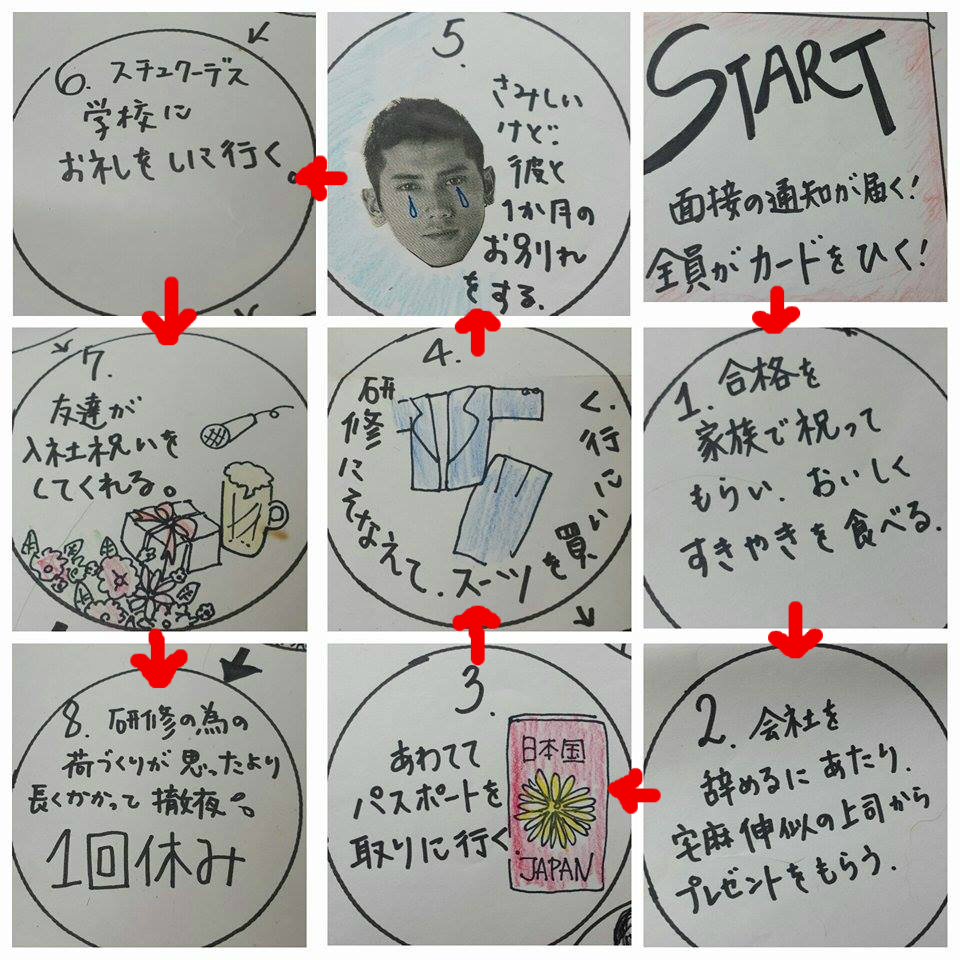 START
面接の通知が届く!
全員がカードをひく!
1. 合格を
家族で祝って
もらい、おいしく
すきやきを食べる.
2. 会社を
辞めるにあたり、
宅麻伸似の上司から
プレゼントをもらう.
3.
あわてて
パスポートを
取りに行く.
日本国
JAPAN
4.
研修にそなえて、スーツを買いに行く.
5.
さみしい
けど、
彼と
1か月の
お別れ
をする.
6. スチュワーデス
学校に
お礼をしに行く
7.
友達が
入社祝いを
してくれる。
8. 研修の為の
荷づくりが思ったより
長くかかって撤夜。
1回休み